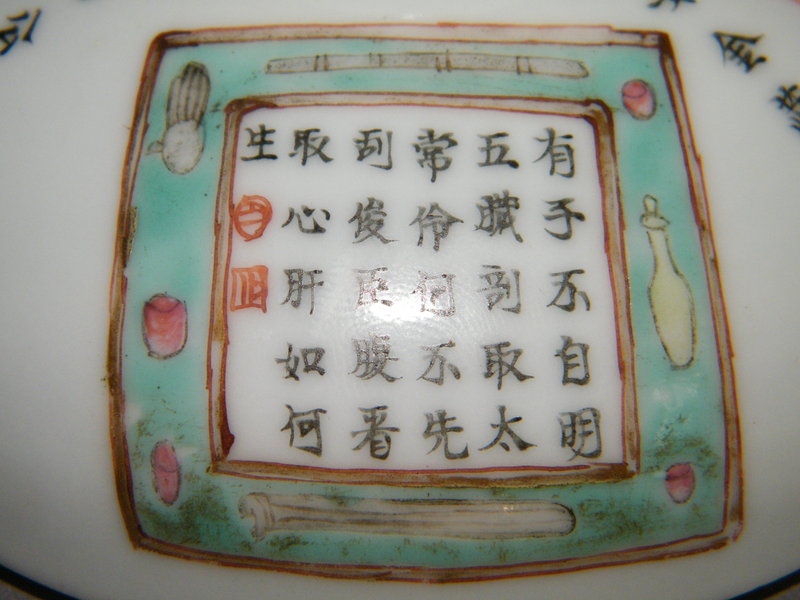 有子不自明
五臟剖取太
常伶何不先
刳俊臣腹看
取心肝如何
生
金